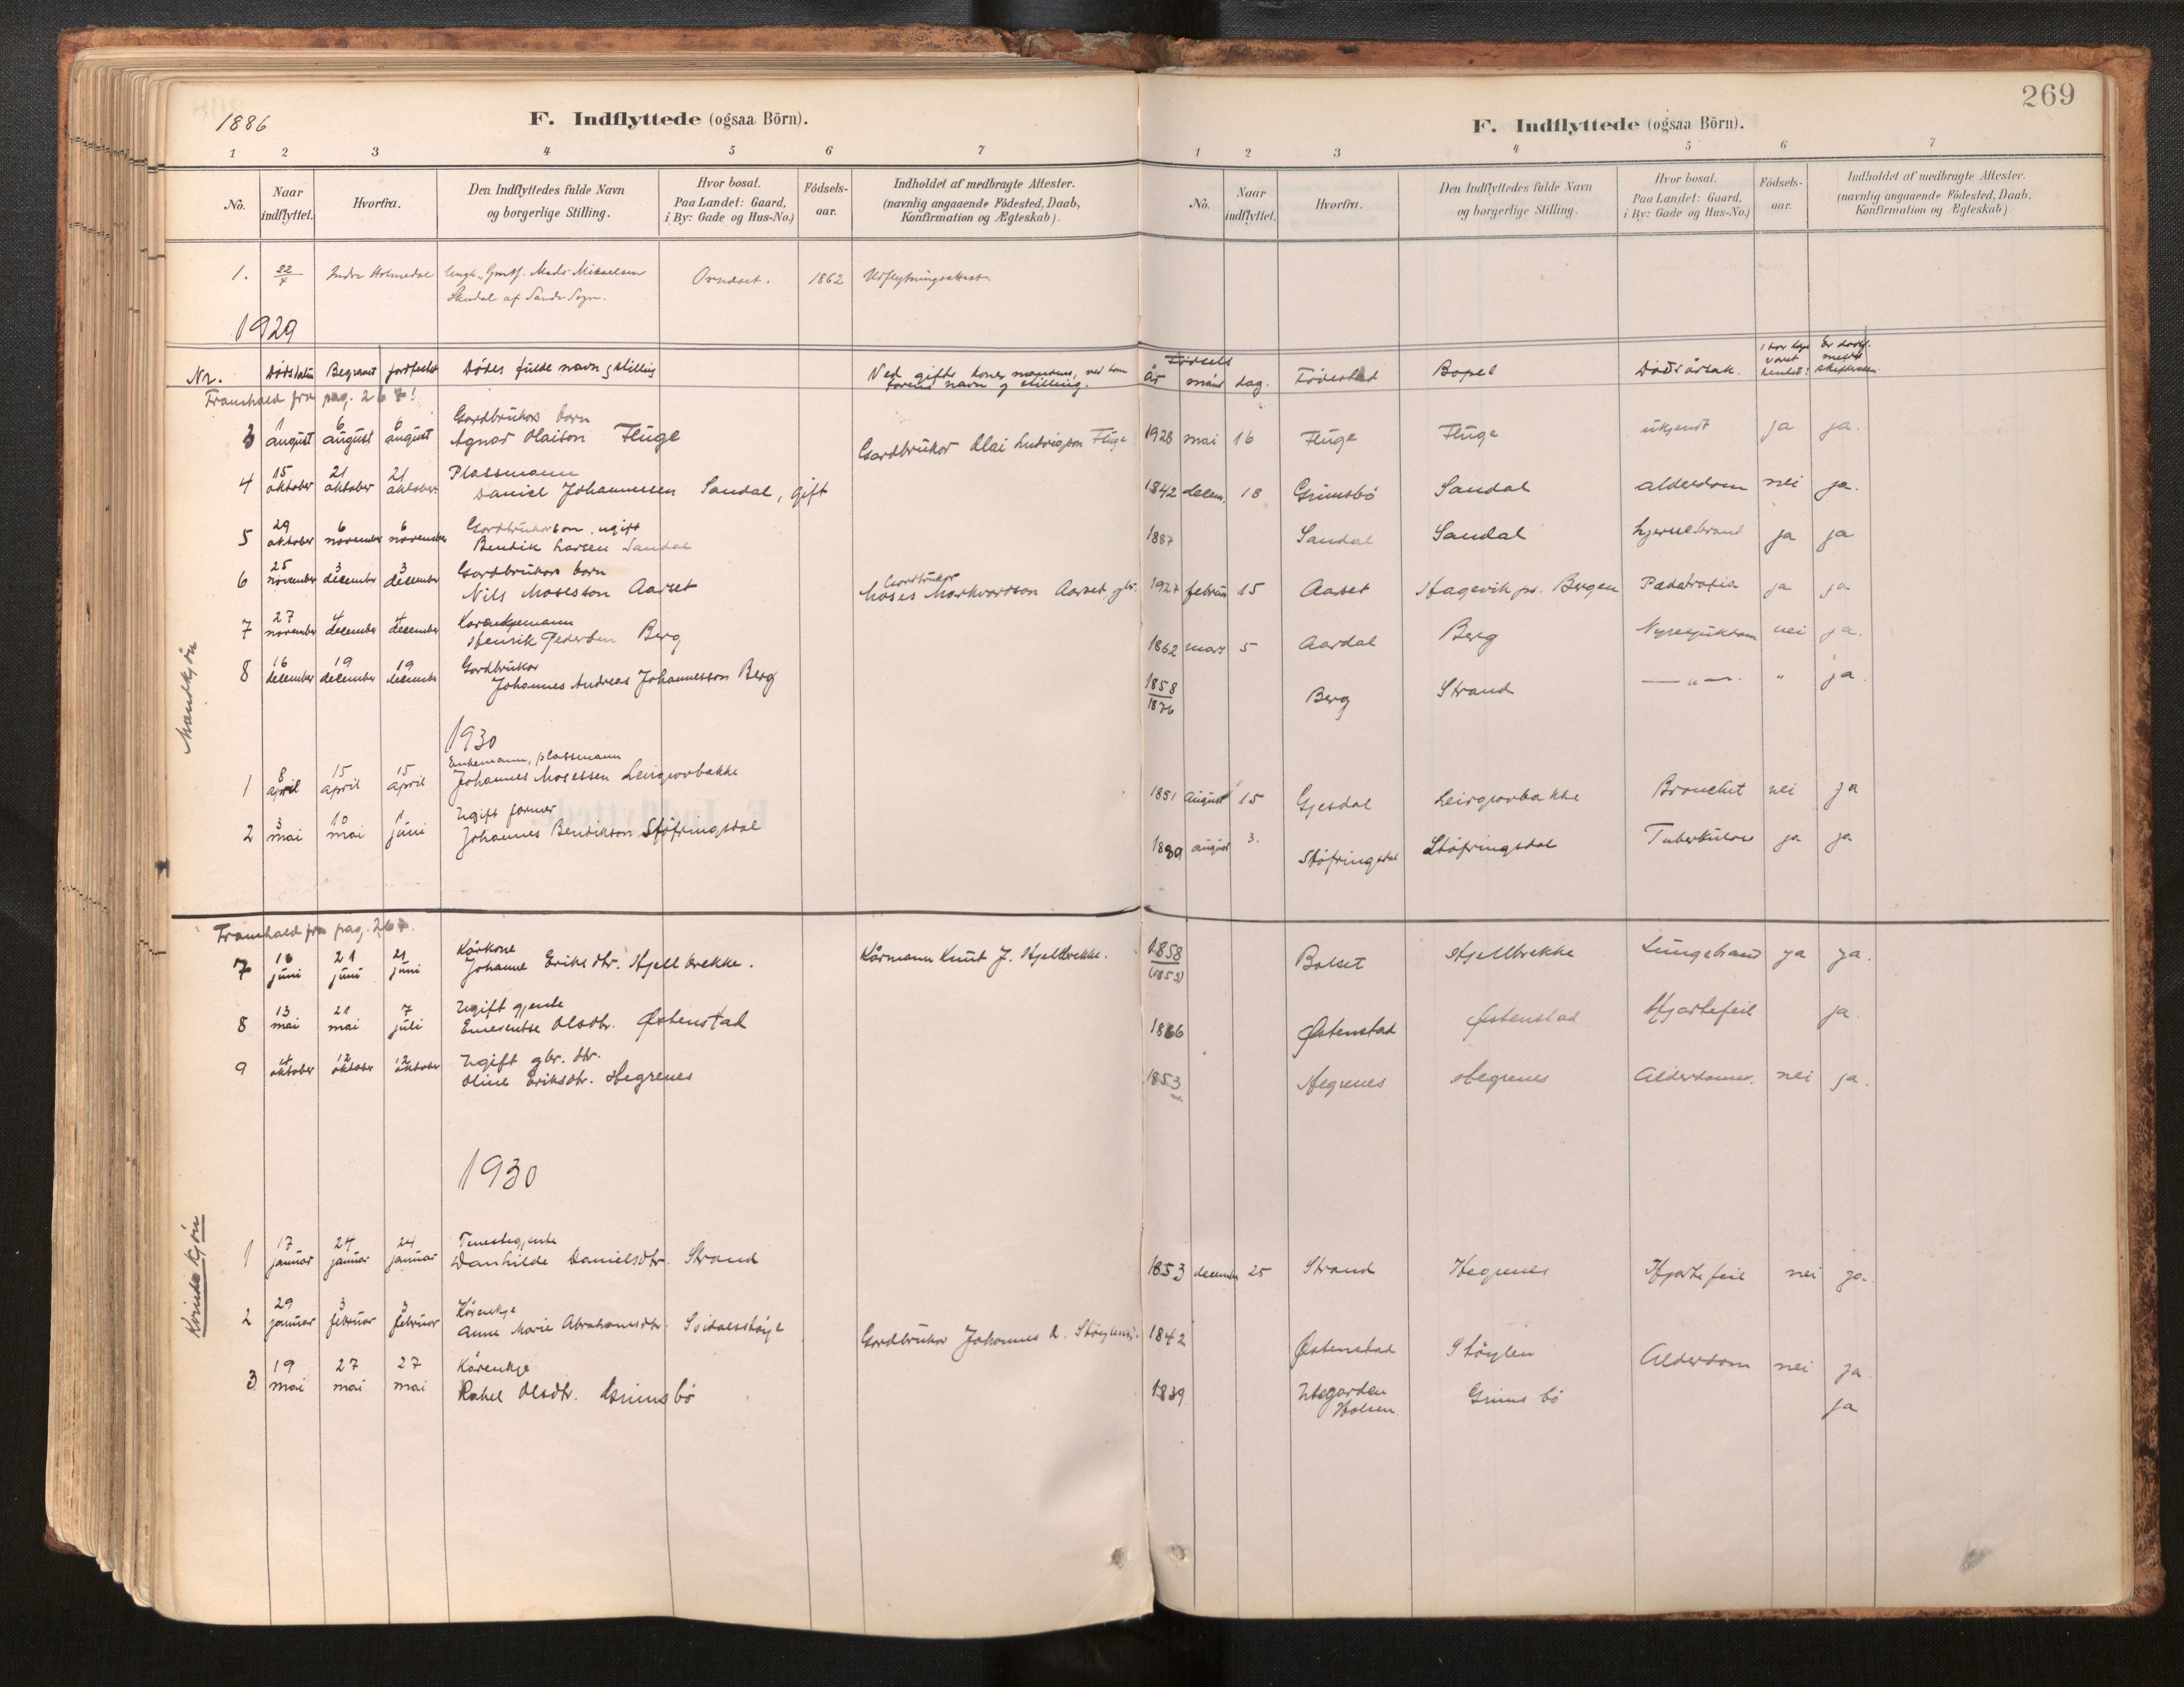 1886
F. Indflyttede (ogsaa Börn).
1 2 3 4 5 6 7
No. Naar indflyttet. Hvorfra. Den Indflyttedes fulde Navn og borgerlige Stilling. Hvor bosat. Paa Landet: Gaard, i By: Gade og Hus-No.) Födsels-aar. Indholdet af medbragte Attester. (navnlig angaaende Födested, Daab, Konfirmation og Ægteskab).
1. 22/7 Indre Holmedal Ungk., Gmdsf. Mads Mikaelsen 1862 Udflytningsattest.
Sandal af Sande Sogn.
1929
Nr. Dödsdatum Begravet jordfestet Dödes fulde navn og stilling Ved gifte koner mannens, ved born
forens navn og stilling.
Framhald fra pag. 267!
Gardbrukars born
3 1 august 6 august 6 august Agnar Olaison Fluge Gardbrukar Olai Ludvigson Fluge
Plassmann
4 15 oktober 21 oktober 21 oktober Daniel Johannessen Sandal, gift
Gardbrukarson, ugift
5 29 oktober 6 november 6 november Bendik Larsen Sandal
Gardbrukars born Gardbrukar
6 25 november 3 december 3 december Nils Mosesson Aarset Moses Markvardson Aarset, gbr.
7 27 november 4 december 4 december Henrik Pederson Berg
Gardbrukar
8 16 december 19 december 19 december Johannes Andreas Johannesson Berg
Mandkjön
1930
Enkemann, plassmann
1 8 april 15 april 15 april Johannes Mosessen Leirgrovbakke
Ugift farmer
2 3 mai 10 mai 1 juni Johannes Bendikson Støfringsdal
Framhald fra pag. 267.
Kårkone
7 16 juni 21 juni 21 juni Johanne Eriksdtr. Hjellbrekke. Kårmann Knut J. Hjellbrekke.
Ugift gjente
8 13 mai 21 mai 7 juli Emerentse Olsdtr. Østenstad
Ugift gbr. dtr.
9 4 oktober 12 oktober 12 oktober Oline Eriksdtr. Hegrenes
1930
Kvindekjön
Tenestegjente
1 17 januar 24 januar 24 januar Danhilde Danielsdtr. Strand
Kårenkje
2 29 januar 3 februar 3 februar Anne Marie Abrahamsdtr. Gardbrukar Johannes
Kårenkje
3 19 mai 27 mai 27 mai Rakel Olsdtr. Grimsbö
269
F. Indflyttede (ogsaa Börn).
1 2 3 4 5 6 7
No. Naar indflyttet. Hvorfra. Den Indflyttedes fulde Navn og borgerlige Stilling. Hvor bosat. Paa Landet: Gaard, i By: Gade og Hus-No.) Födsels-aar. Indholdet af medbragte Attester. (navnlig angaaende Födested, Daab, Konfirmation og Ægteskab)
Födsels
år månd dag. Födestad Bopel Dödsårsak.
1928 mai 16 Fluge Fluge ukjendt ja ja.
1842 decem. 18 Grimsbö Sandal alderdom nei ja.
1887 Sandal Sandal hjernebrand ja ja
1927 februar 15 Aarset Hagevik pr. Bergen Pædatrofia ja ja
1862 mars 5 Aardal Berg Nyresjukdom nei ja.
1858
1876 Berg Strand — " — " ja
1851 august 15 Gjesdal Leirgrovbakke Bronchit nei ja
1889 august 3. Støfringsdal Støfringsdal Tuberkulose ja ja
1858
(1853) Bolset Hjellbrekke Lungebrand ja ja.
1866 Østenstad Østenstad Hjartefeil ja.
1853 Hegrenes Hegrenes Alderdomsv. nei ja.
1853 december 25 Strand Hegrenes Hjartefeil nei ja.
1842 Østenstad Støylen Alderdom nei ja.
1839 Utegarden
Holsen Grimsbö ja